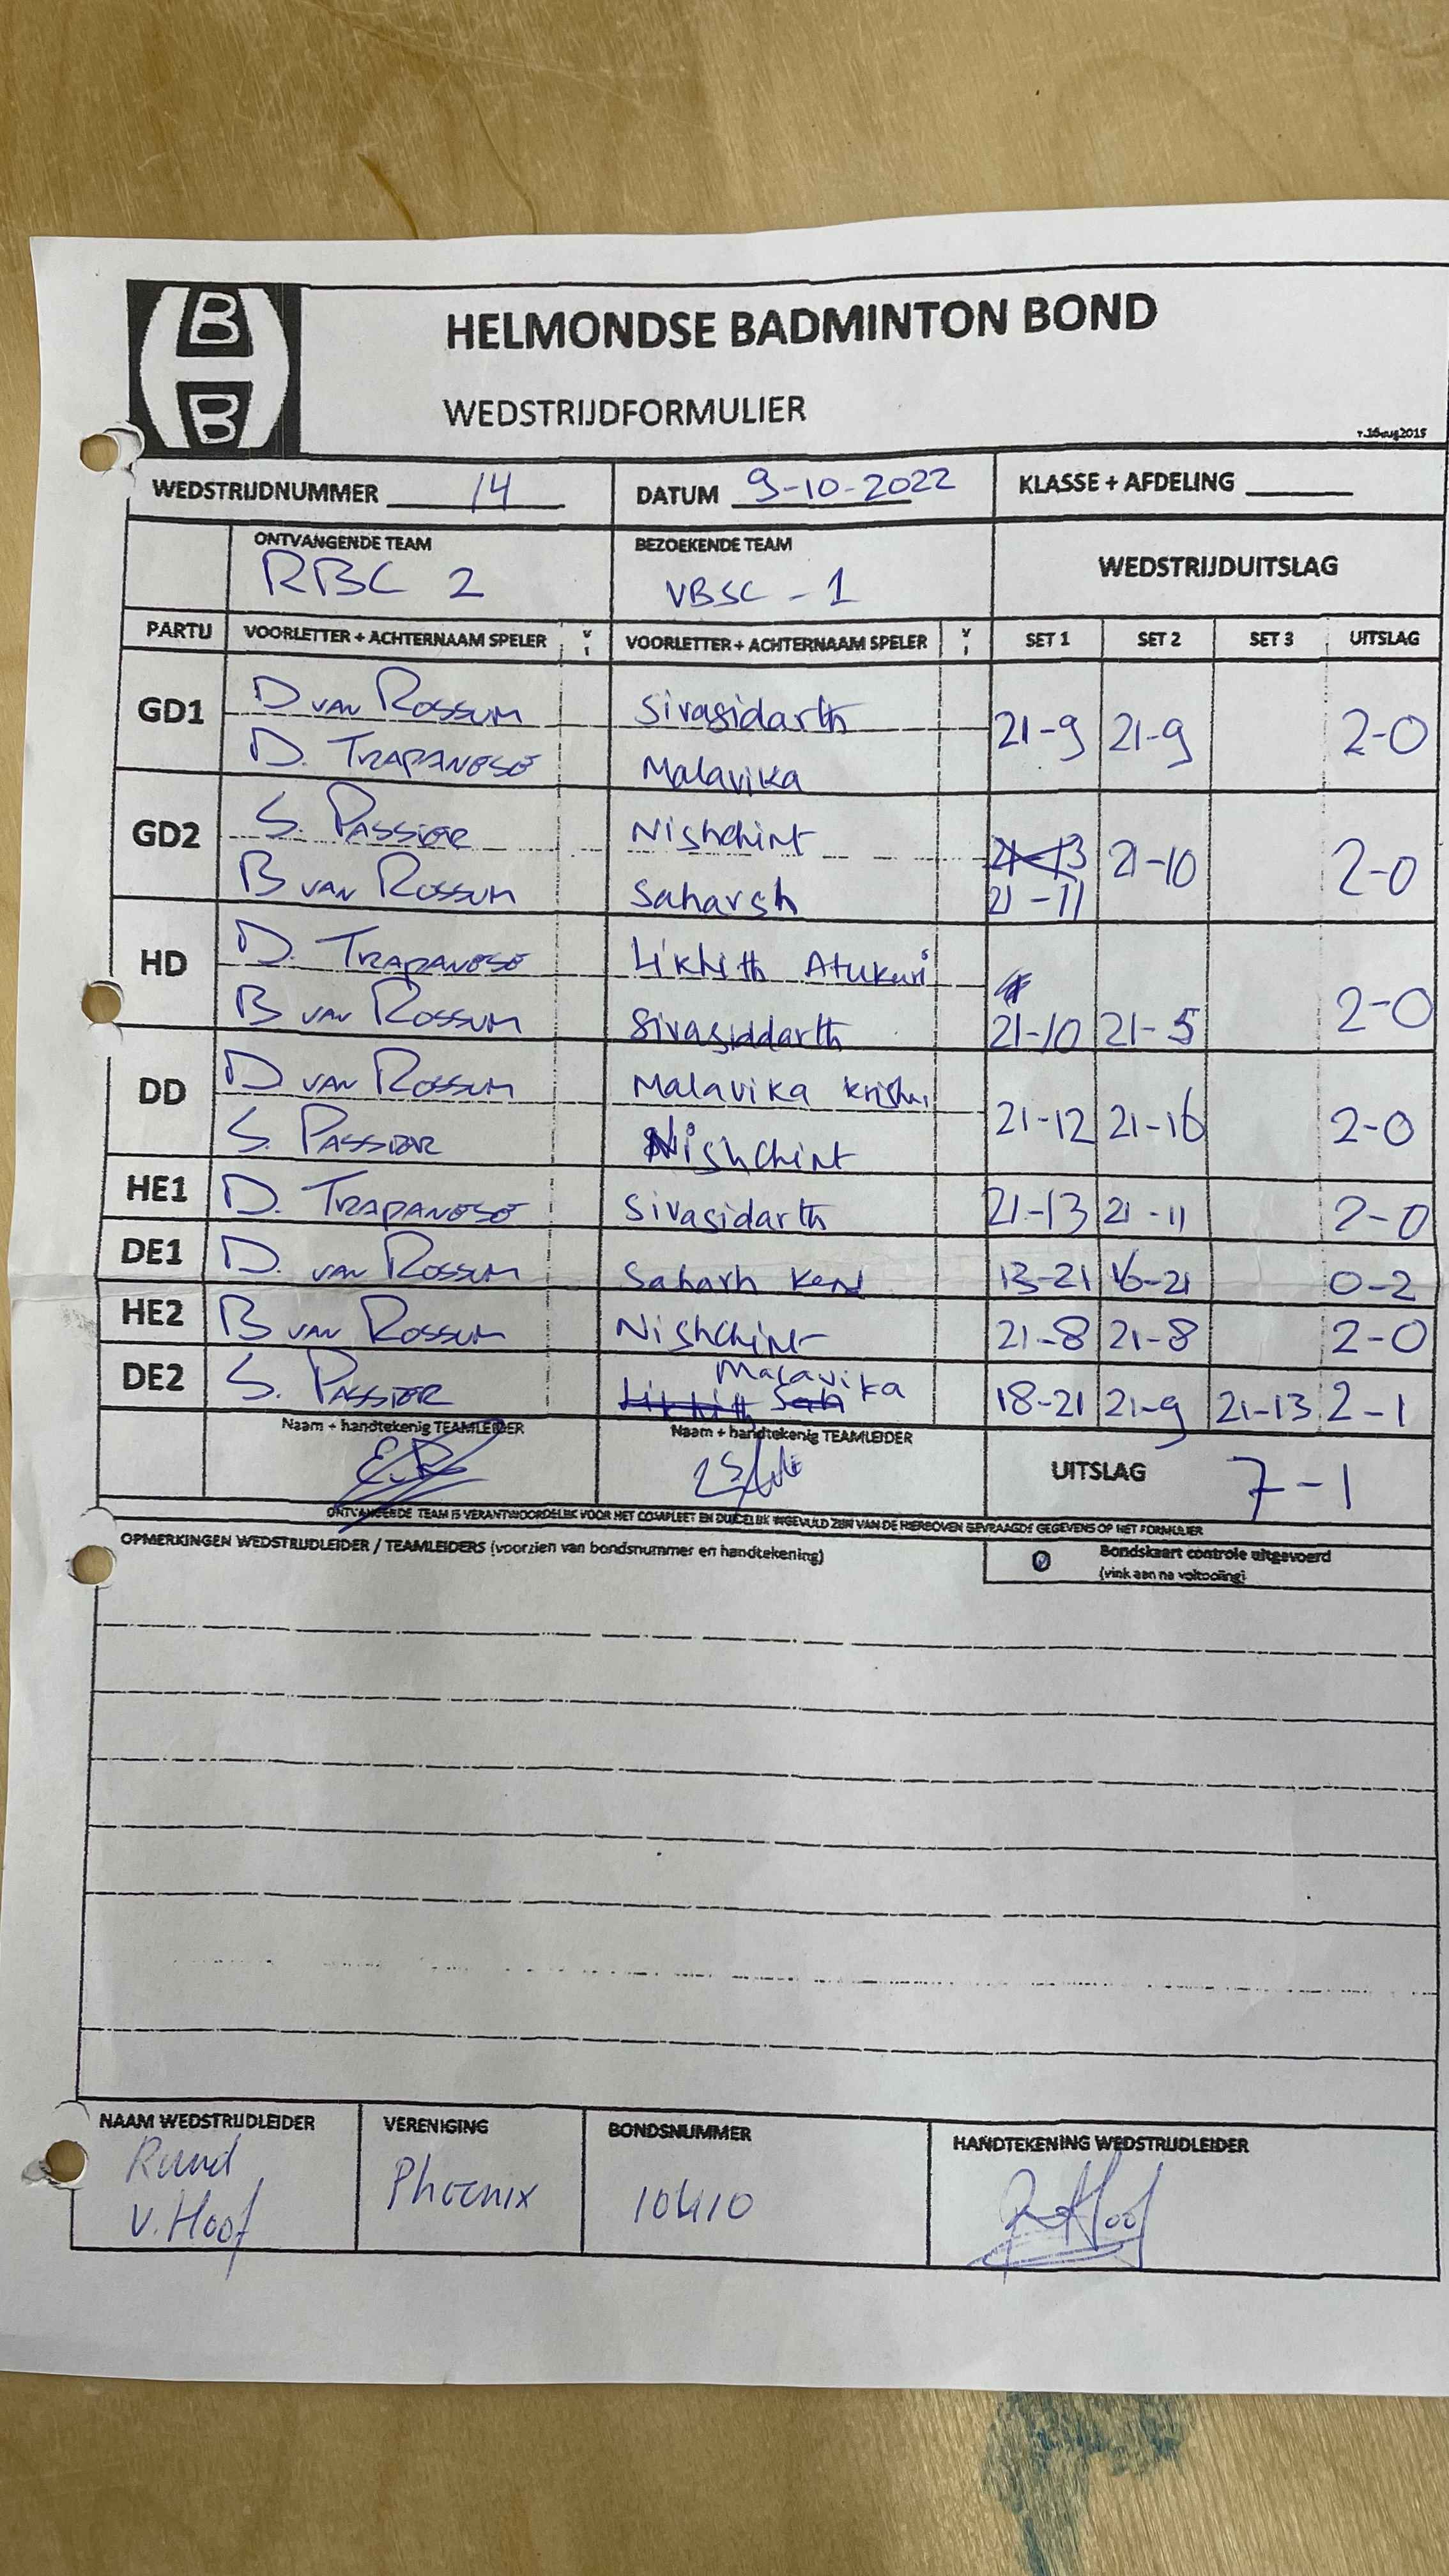 B
B
HELMONDSE BADMINTON BOND
WEDSTRIJDFORMULIER
WEDSTRIJDNUMMER 14 DATUM 9-10-2022 KLASSE + AFDELING
ONTVANGENDE TEAM BEZOEKENDE TEAM WEDSTRIJDUITSLAG
RBC 2 VBSC - 1
PARTIJ VOORLETTER + ACHTERNAAM SPELER V VOORLETTER + ACHTERNAAM SPELER V SET 1 SET 2 SET 3 UITSLAG
GD1 D VAN ROSSUM Sivasidarth 21-9 21-9 2-0
D. TRAPANESE Malavika
GD2 S. PASSIER Nishchint 21-10 2-0
B VAN ROSSUM Saharsh 21-11
HD D. TRAPANESE Likhith Atukuri
B VAN ROSSUM Sivasiddarth 21-10 21-5 2-0
DD D VAN ROSSUM Malavika 21-12 21-16 2-0
S. PASSIER Nishchint
HE1 D. TRAPANESE Sivasidarth 21-13 21-11 2-0
DE1 D. VAN ROSSUM 13-21 16-21 0-2
HE2 B VAN ROSSUM Nishchint 21-8 21-8 2-0
DE2 S. PASSIER Malavika 18-21 21-9 21-13 2-1
Naam + handtekenig TEAMLEIDER Naam + handtekenig TEAMLEIDER
UITSLAG 7-1
ONTVANGENDE TEAM IS VERANTWOORDELIJK VOOR HET COMPLEET EN DUIDELIJK INGEVULD ZIJN VAN DE HIERBOVEN GEVRAAGDE GEGEVENS OP HET FORMULIER
OPMERKINGEN WEDSTRIJDLEIDER / TEAMLEIDERS (voorzien van bondsnummer en handtekening) Bondskaart controle uitgevoerd
(vink aan na voltooiing)
NAAM WEDSTRIJDLEIDER VERENIGING BONDSNUMMER HANDTEKENING WEDSTRIJDLEIDER
Ruud Phoenix 10410
v. Hoof